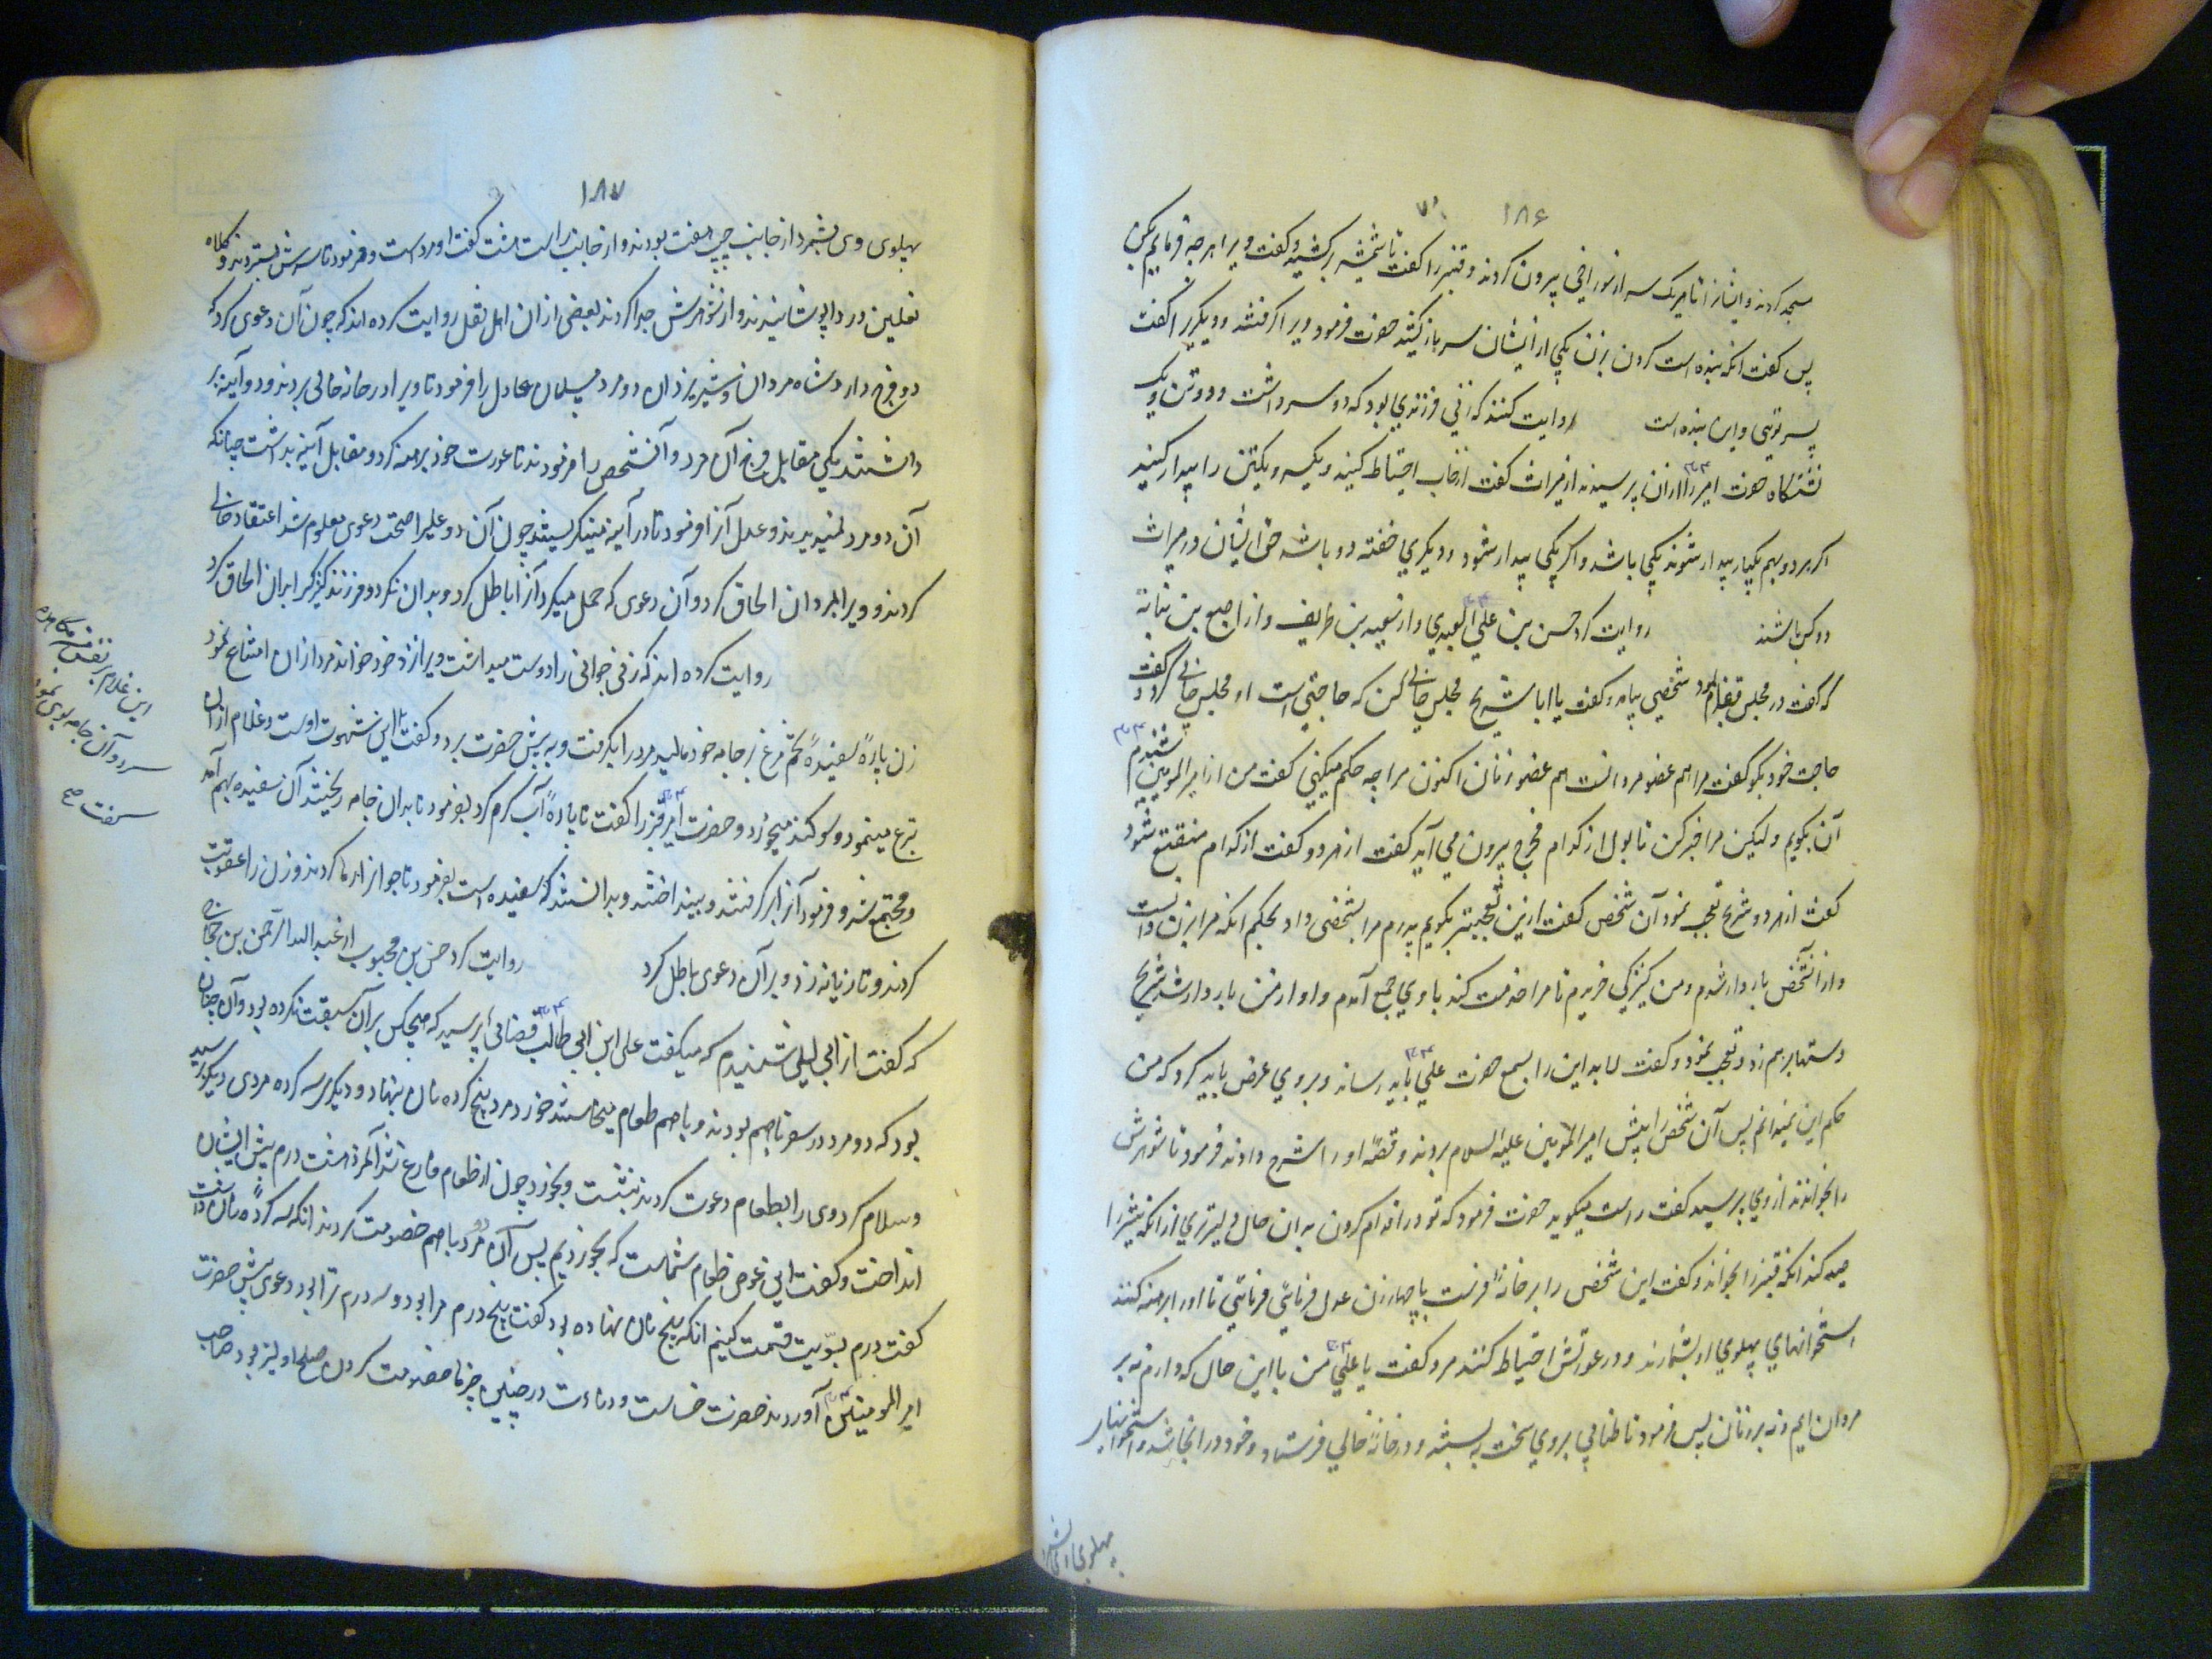 ۱۸۶
مسجد کردند و ایشانرا تا هریک سر از سوراخی بیرون کردند و قنبر را گفت تا شمشیر برکشید و گفت ویرا هرچه فرمایم بکن
پس گفت آنکه بنده است گردن بزن یکی از ایشان سر باز کشید حضرت فرمود ویرا گرفتند و دیگر را گفت
پسر توئی و این بنده است روایت کنند که زنی فرزندی بود که دو سر داشت و دو تن و یک
نشستگاه حضرت امیر را از آن پرسیدند از میراث گفت از خاب احتیاط کنید و یکسر و یکتن را بیدار کنید
اگر هر دو بهم یکبار بیدار شوند یکی باشد و اگر یکی بیدار شود و دیگری خفته دو باشد حق ایشان در میراث
دو کس باشند روایت کرد حسن بن علی العبدی و از سعید بن طریف و از اصبغ بن نباته
که گفت در مجلس قضا بودم شخصی بیامد و گفت یا ابا شریح مجلس خالی کن که حاجتی است او مجلس خالی کرد و گفت
حاجت خود بگو گفت مرا هم عضو مردانست هم عضو زنان اکنون مرا چه حکم میکنی گفت من از امیر المومنین شنیدم
آن بگویم ولیکن مرا خبر کن تا بول از کدام مخرج بیرون می آید گفت از هر دو گفت از کدام منقطع شود
گفت از هر دو شریح تعجب نمود آن شخص گفت ازین عجیبتر بگویم پدرم مرا بشخصی داد بحکم آنکه مرا زن دانست
و از آنشخص باردار شدم و من کنیزکی خریدم تا مرا خدمت کند با وی جمع آمدم و او از من باردار شد شریح
دستها برهم زد و تعجب نمود و گفت لابد این را بسمع حضرت علی باید رساند و بروی عرض باید کرد که من
حکم این نمیدانم پس آن شخص را پیش امیر المومنین علیه السلام بردند و قصهٔ او را شرح دادند فرمود تا شوهرش
را بخوانند از وی پرسید گفت راست میگوید حضرت فرمود که تو در اقدام کردن به ان حال دلیرتری از آنکه شیر را
صید کند آنکه قنبر را بخواند و گفت این شخص را بر خانهٔ فرست با چهار زن عدل فرمائی تا او را برهنه کنند
استخوانهای پهلوی او بشمارند و در عورتش احتیاط کنند مرد گفت یا علی من با این حال که دارم نه بر
مردان ایم و نه بر زنان پس فرمود تا طنابی بروی سخت به بستند و در خانهٔ خالی فرستاد و خود در انجا شد و استخوانهای
پهلوی
۱۸۷
پهلوی وی بشمرد از جانب چپ هفت بودند و از جانب راست هشت گفت او مرد است و فرمود تا سرش بستردند و کلاه
نعلین و ردا پوشانیدند و از شوهرش جدا کردند بعضی از ان اهل نقل روایت کرده اند که چون آن دعوی کرد که
دو فرج دارد شاه مردان و شیر یزدان دو مرد مسلمان عادل را فرمود تا ویرا در خانه خالی بردند و دو آیینه بر
داشتند یکی مقابل فرج آن مرد و آنشخص را فرمودند تا عورت خود برهنه کرد و مقابل آیینه بداشت چنانکه
آن دو مرد نمیدیدند و عدل آنرا فرمود تا در آیینه مینگریستند چون آن دو علیرا صحت دعوی معلوم شد اعتقاد خالی
کردند و ویرا بمردان الحاق کرد و آن دعوی که حمل میکرد آنرا باطل کرد و بدان نکرد و فرزند کنیزک را بدان الحاق کرد
روایت کرده اند که زنی جوانی را دوست میداشت ویرا نزد خود خواند مرد از ان امتناع نمود
زن پارهٔ سفیدهٔ تخم مرغ بر جامه خود مالید مرد را بگرفت و به پیش حضرت برد و گفت این شهوت اوست و غلام از ان
تبری مینمود و سوگند میخورد و حضرت امیر قنبر را گفت تا پارهٔ آب گرم کرد بفرمود تا بدان جامه ریختند آن سفیده بهم آمد
و مجتمع شد و فرمود آنرا برگرفتند و بینداختند و بدانستند که سفیده است بفرمود تا جوانرا رها کردند و زن را عقوبت
کردند و تازیانه زد و بر آن دعوی باطل کرد روایت کرد حسن بن محبوب از عبد الله الرحمن بن حجاج
که گفت از ابی لیلی شنیدم که میگفت علی ابن ابی طالب قضائی پرسید که هیچکس بر آن سبقت نکرده بود و آن چنان
بود که دو مرد در سفر با هم بودند و با هم طعام میخاستند خورد مرد پنج کرده نان بنهاد و دیگری سه کرده مردی دیگر رسید
و سلام کرد وی را بطعام دعوت کردند بنشست و بخورد چون از طعام فارغ شد آنمرد هشت درم پیش ایشان
انداخت و گفت این عوض طعام شماست که بخوردیم پس آن دو مرد با هم خصومت کردند آنکه سه کردهٔ نان داشت
گفت درم بسویت قسمت کنیم آنکه پنج نان نهاده بود گفت پنج درم مرا بود و سه درم ترا بود دعوی پیش حضرت
امیر المومنین آوردند حضرت خساست و دناءت در چنین چیزها خصومت کردن صلح اولیتر بود صاحب
این غلام
سر و آن جامه بوی نمود